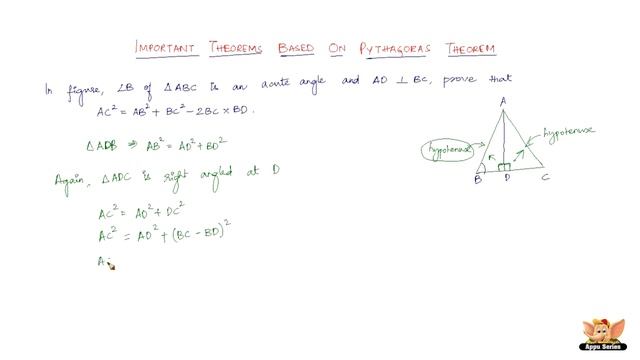 IMPORTANT THEOREMS BASED ON PYTHAGORAS THEOREM
In figure, ∠B of △ABC is an acute angle and AD ⊥ BC, prove that
AC² = AB² + BC² − 2BC × BD.
△ADB ⇒ AB² = AD² + BD²
Again, △ADC is right angled at D
AC² = AD² + DC²
AC² = AD² + (BC − BD)²
A
A
hypotenuse
hypotenuse
B D C
Appu Series